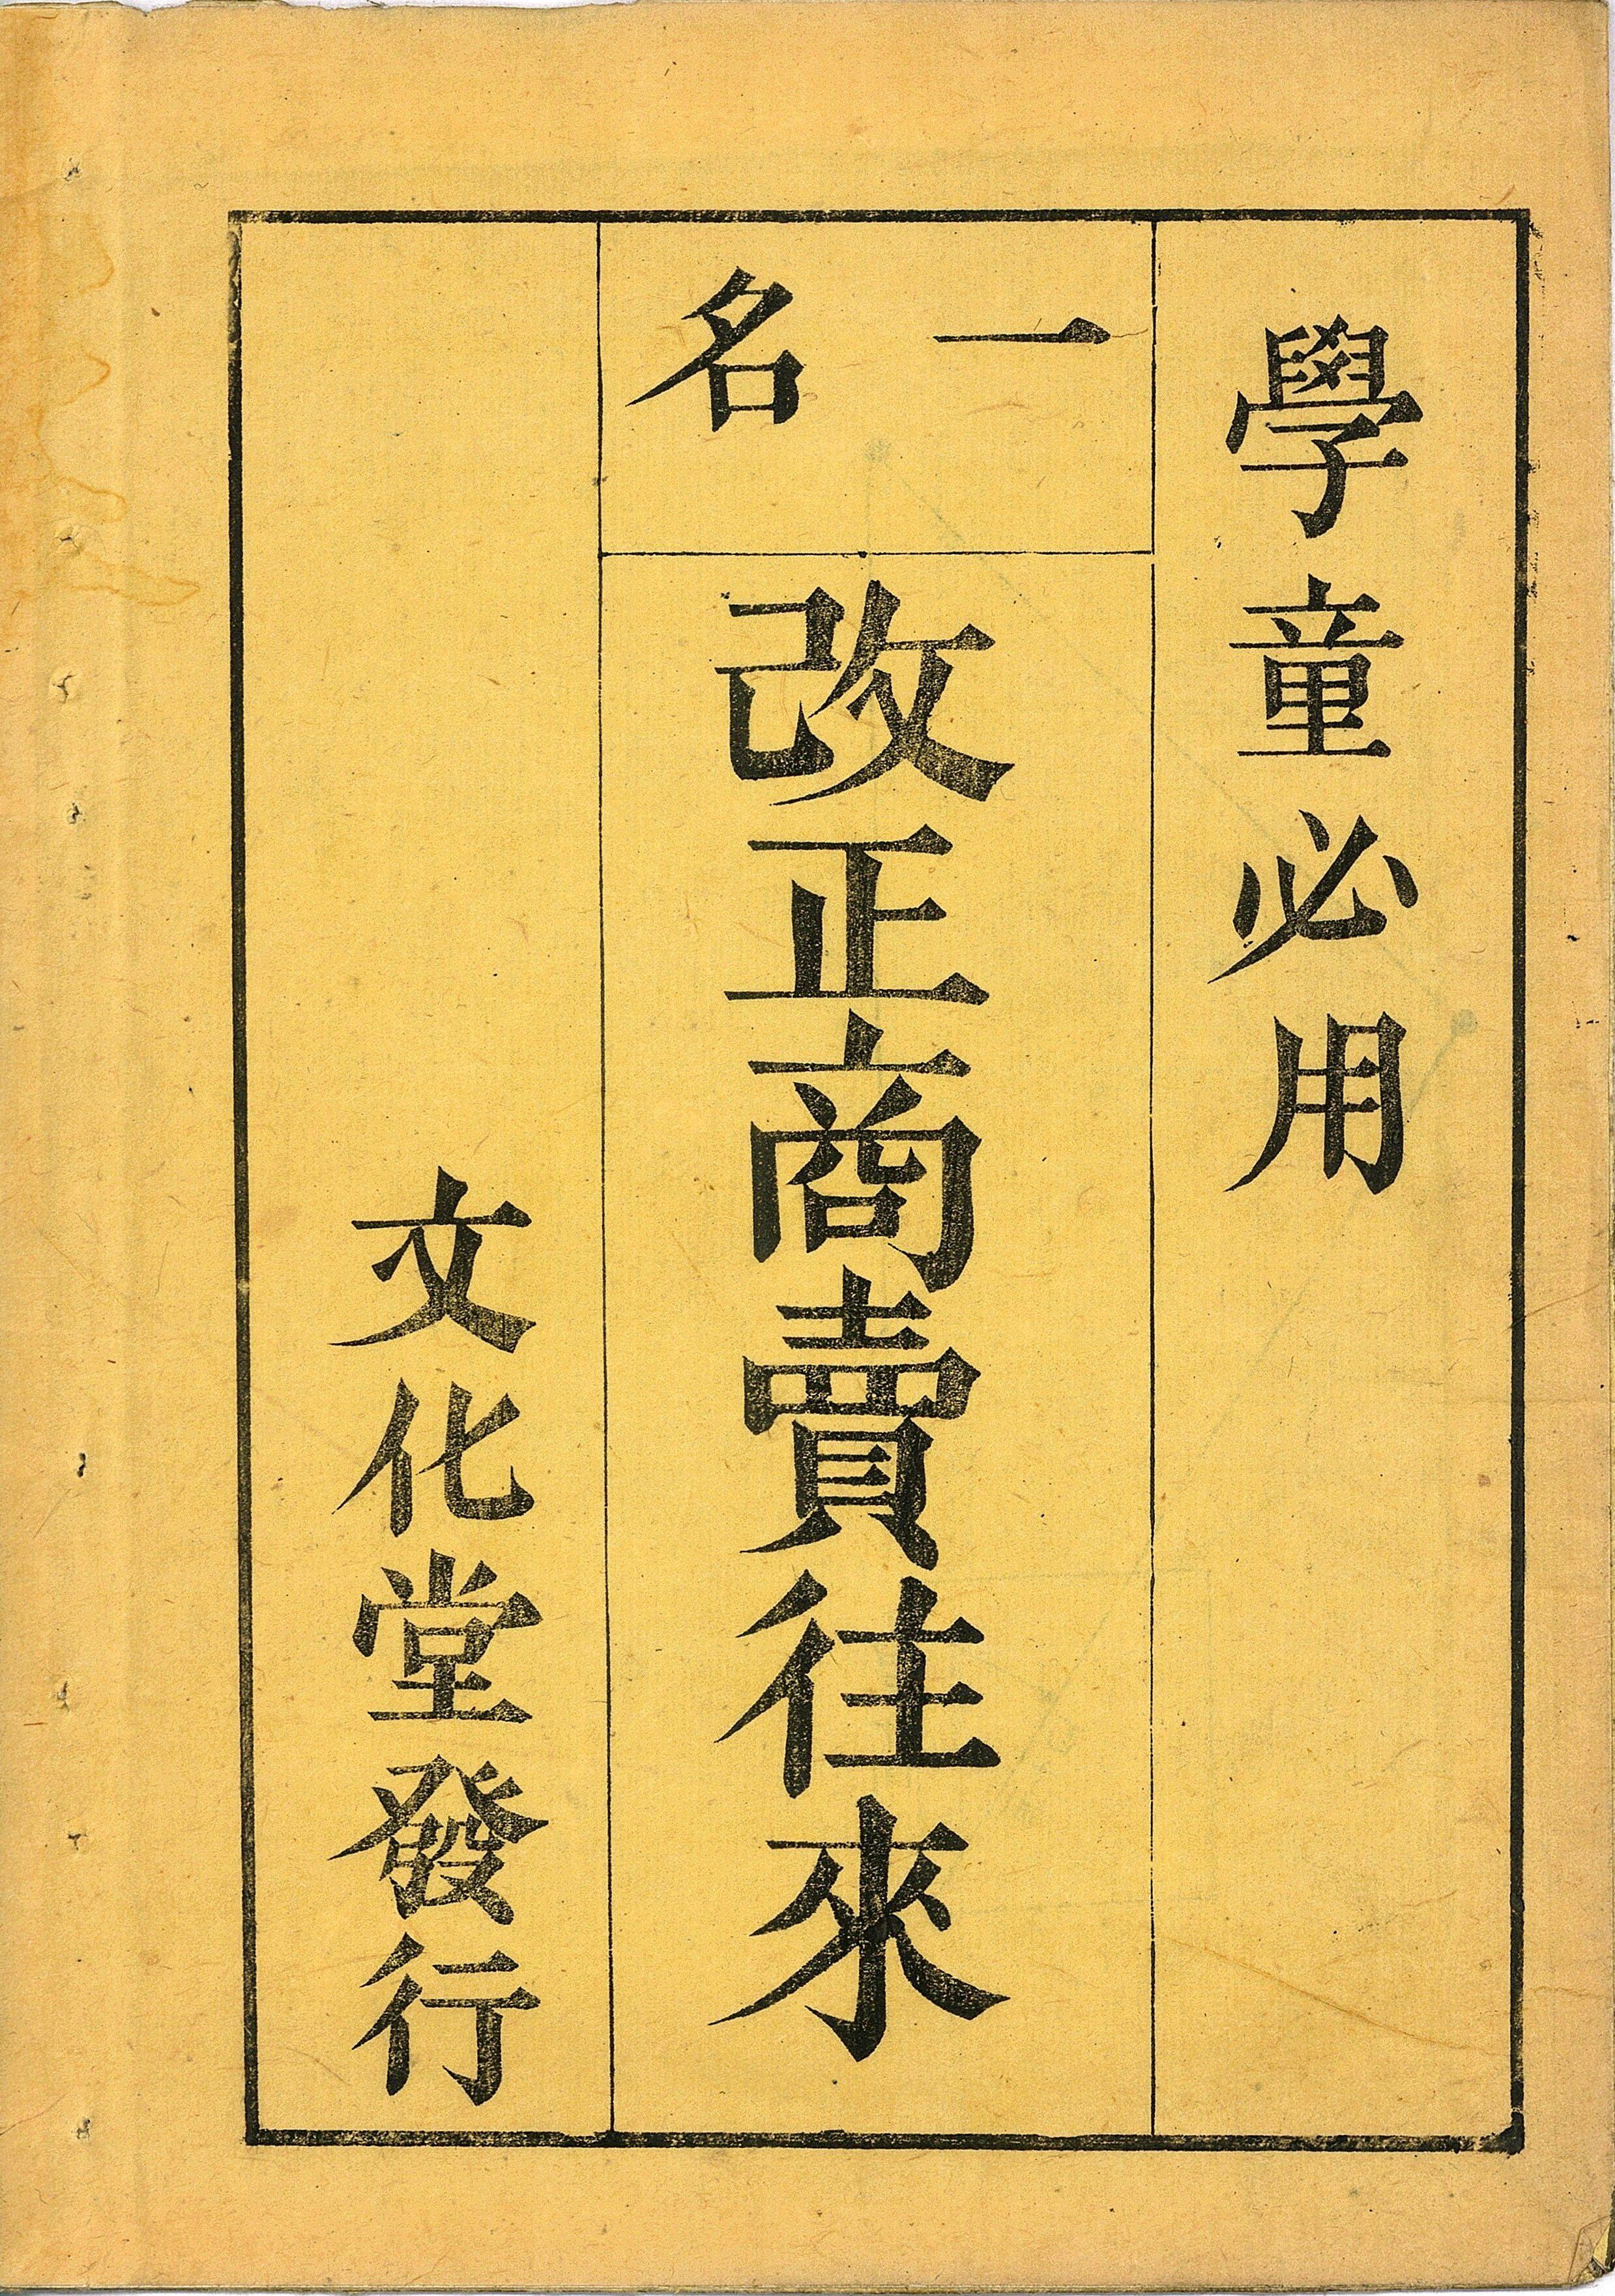 學童必用
一名
改正商賣往來
文化堂發行